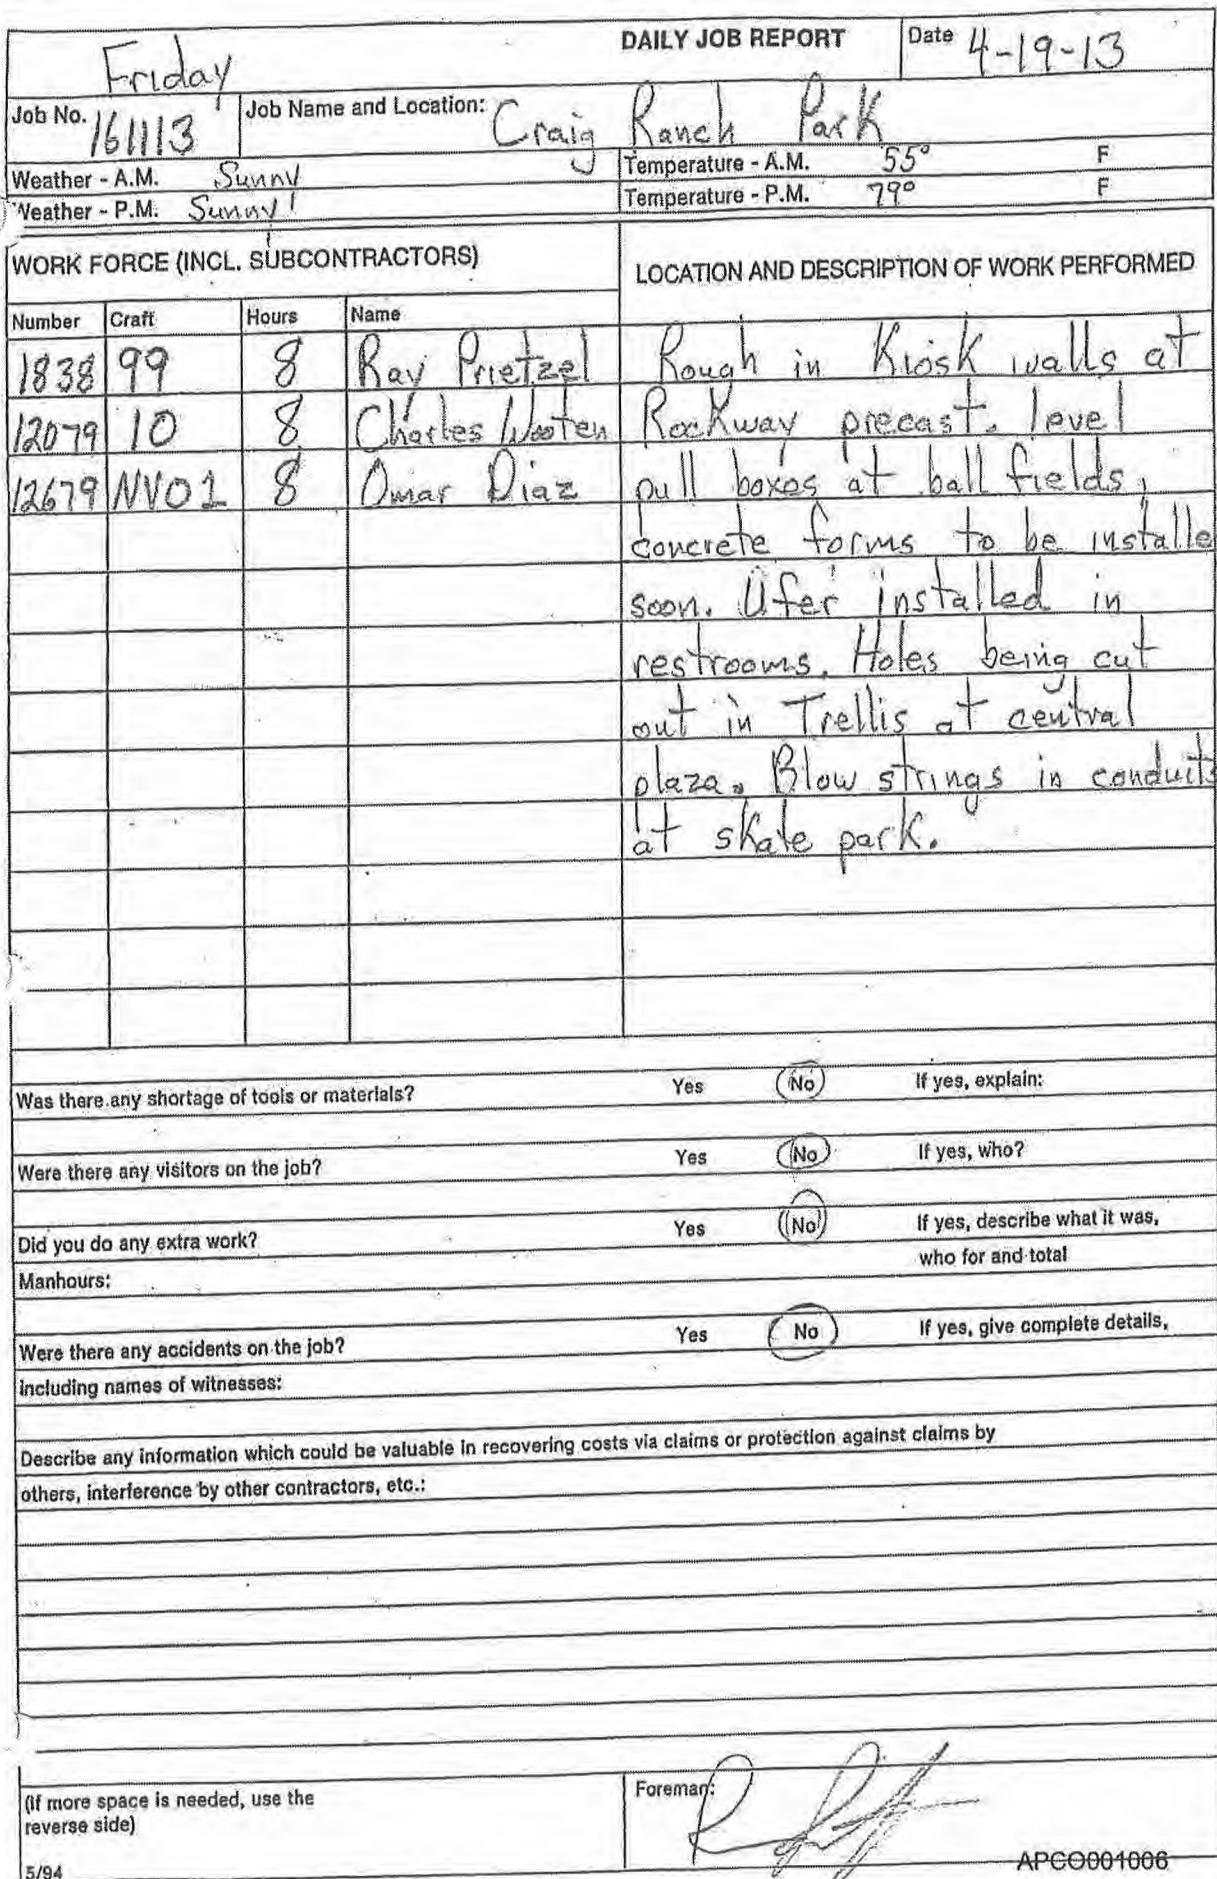 DAILY JOB REPORT
Date 4-19-13
Friday
Job No. 161113
Job Name and Location: Craig Ranch Park
Weather - A.M. Sunny
Temperature - A.M. 55° F
Weather - P.M. Sunny
Temperature - P.M. 79° F
WORK FORCE (INCL. SUBCONTRACTORS)
LOCATION AND DESCRIPTION OF WORK PERFORMED
Number Craft Hours Name
1838 99 8 Ray Prietzel
12079 10 8 Charles Wooten
12679 NV01 8 Omar Diaz
Rough in Kiosk walls at
Rockway precast. level
pull boxes at ball fields,
concrete forms to be installe
soon. Ufer installed in
restrooms. Holes being cut
out in Trellis at central
plaza. Blow strings in conduits
at skate park.
Was there any shortage of tools or materials? Yes No If yes, explain:
Were there any visitors on the job? Yes No If yes, who?
Did you do any extra work? Yes No If yes, describe what it was,
who for and total
Manhours:
Were there any accidents on the job? Yes No If yes, give complete details,
including names of witnesses:
Describe any information which could be valuable in recovering costs via claims or protection against claims by
others, interference by other contractors, etc.:
(If more space is needed, use the
reverse side)
Foreman:
5/94
APCO001006